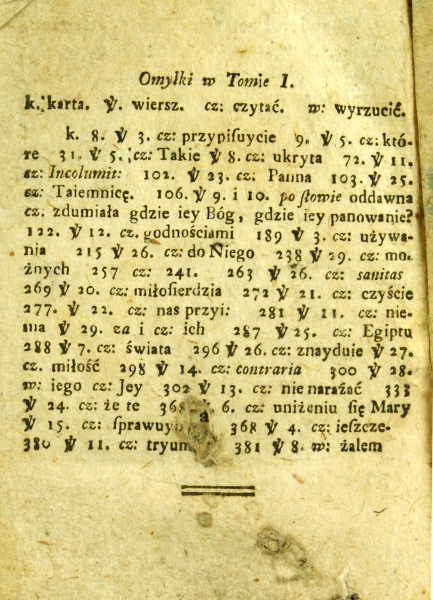 Omyłki w Tomie I.
k. karta. ℣. wiersz. cz: czytać. w: wyrzucić.
k. 8. ℣ 3. cz: przypiſuycie 9. ℣ 5. cz: któ-
re 31. ℣ 5. cz: Takie ℣ 8. cz: ukryta 72. ℣ 11.
cz: Incolumit: 102. ℣ 23. cz: Panna 103. ℣ 25.
cz: Taiemnicę. 106. ℣ 9. i 10. po ſłowie oddawna
cz: zdumiała gdzie iey Bóg, gdzie iey panowanie?
122. ℣ 12. cz. godnościami 189 ℣ 3. cz: używa-
nia 215 ℣ 26. cz: do Niego 238 ℣ 29. cz: mo-
żnych 257 cz: 241. 263 ℣ 26. cz: sanitas
269 ℣ 20. cz: miłoſierdzia 272 ℣ 21. cz: czyście
277. ℣ 22. cz: nas przyi: 281 ℣ 11. cz: nie-
ma ℣ 29. za i cz: ich 287 ℣ 25. cz: Egiptu
288 ℣ 7. cz: świata 296 ℣ 26. cz: znayduie ℣ 27.
cz. miłość 298 ℣ 14. cz: contraria 300 ℣ 28.
w: iego cz: Jey 302 ℣ 13. cz: nie narażać 333
℣ 24. cz: że te ℣ 6. cz: uniżeniu się Mary
℣ 15. cz: ſprawuy 368 ℣ 4. cz: ieszcze-
380 ℣ 11. cz: tryum 381 ℣ 8. w: żalem